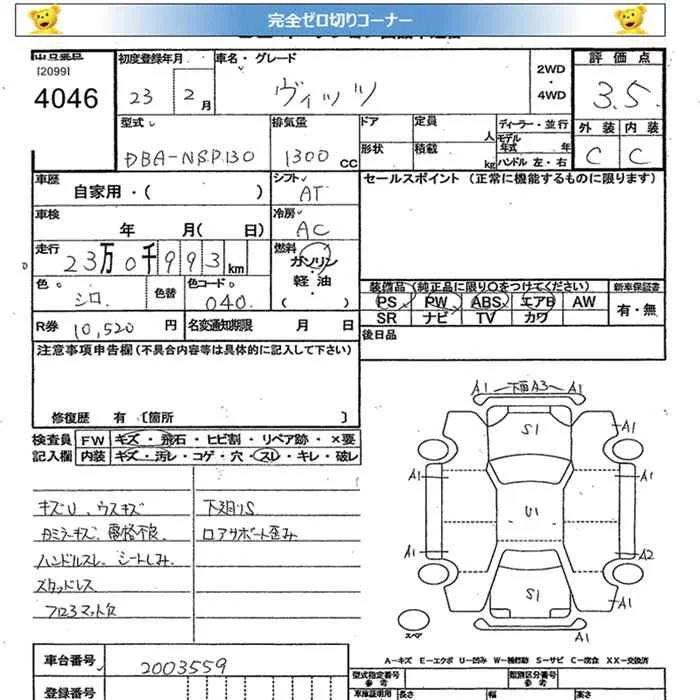 完全ゼロ切りコーナー
[2099]
4046
初度登録年月
23 2月
車名・グレード
ヴィッツ
2WD
・
4WD
評価点
3.5
外装 内装
C C
型式
DBA-NSP130
排気量
1300 CC
ドア
定員 人
形状
積載 kg
ディーラー・並行
モデル年式 年
ハンドル 左・右
車歴
自家用・( )
シフト
AT
セールスポイント (正常に機能するものに限ります)
車検
年 月( 日)
冷房
AC
走行
23万0千993km
燃料
ガソリン
・
軽油
・
( )
色
シロ
色替
色コード
040
装備品(純正品に限り○をつけてください)
PS PW ABS エアB AW
SR ナビ TV カワ
新車保証書
有・無
R券 10,520円
名変通知期限 月 日
後日品
注意事項申告欄(不具合内容等は具体的に記入して下さい)
修復歴 有 〔箇所 〕
検査員記入欄
FW キズ・飛石・ヒビ割・リペア跡・×要
内装 キズ・汚レ・コゲ・穴・スレ・キレ・破レ
キズU、ウスキズ
Gミラーキズ、電格不良
ハンドルスレ、シートしみ
スタッドレス
フロアマット欠
下廻りS
ロアサポート歪み
A1 下面A3 A1
S1
A1
A1 A1
U1
A1 A2
S1
A1
A1
スペア
A−キズ E−エクボ U−凹み W−補修跡 S−サビ C−腐食 XX−交換済
車台番号
2003559
登録番号
型式指定番号
参考
類別区分番号
参考
車庫証明用
長さ
幅
高さ